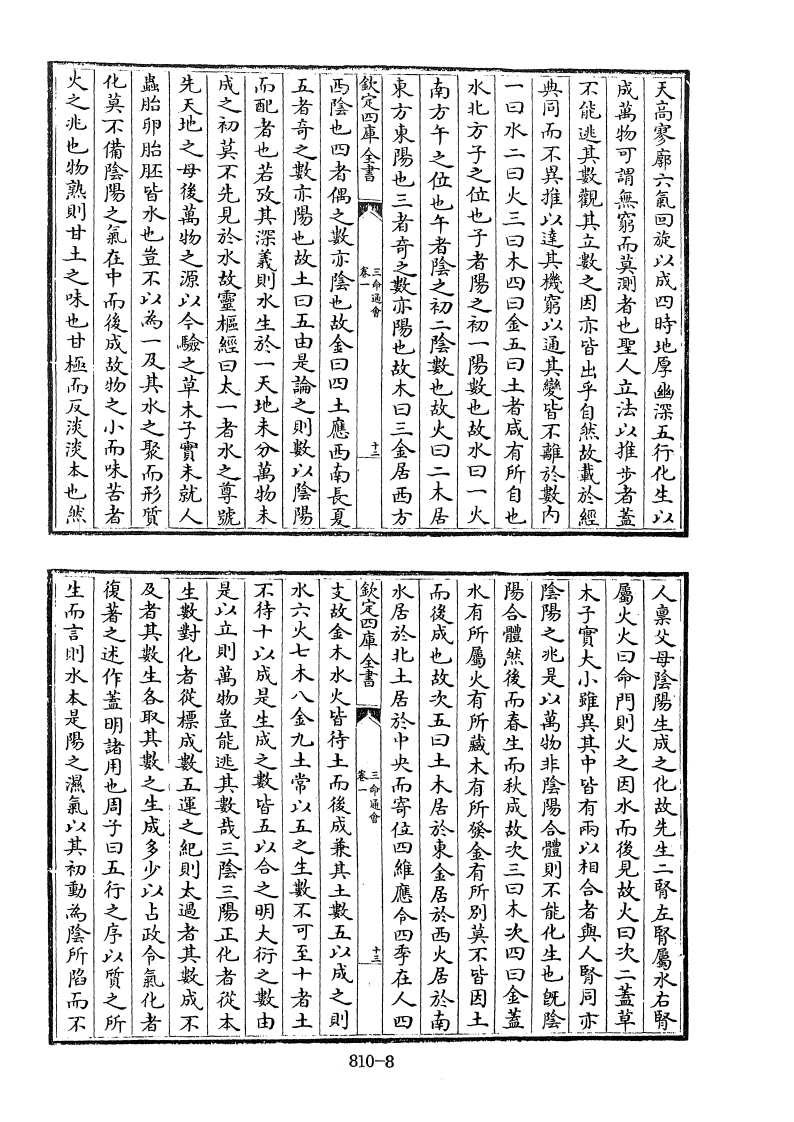 天高寥廓六氣回旋以成四時地厚幽深五行化生以
成萬物可謂無窮而莫測者也聖人立法以推步者蓋
不能逃其數觀其立數之因亦皆出乎自然故載於經
典同而不異推以達其機窮以通其變皆不離於數內
一曰水二曰火三曰木四曰金五曰土者咸有所自也
水北方子之位也子者陽之初一陽數也故水曰一火
南方午之位也午者陰之初二陰數也故火曰二木居
東方東陽也三者奇之數亦陽也故木曰三金居西方
欽定四庫全書
三命通會
卷一
十二
西陰也四者偶之數亦陰也故金曰四土應西南長夏
五者奇之數亦陽也故土曰五由是論之則數以陰陽
而配者也若攷其深義則水生於一天地未分萬物未
成之初莫不先見於水故靈樞經曰太一者水之尊號
先天地之母後萬物之源以今驗之草木子實未就人
蟲胎卵胎胚皆水也豈不以為一及其水之聚而形質
化莫不備陰陽之氣在中而後成故物之小而味苦者
火之兆也物熟則甘土之味也甘極而反淡淡本也然
人稟父母陰陽生成之化故先生二腎左腎屬水右腎
屬火火曰命門則火之因水而後見故火曰次二蓋草
木子實大小雖異其中皆有兩以相合者與人腎同亦
陰陽之兆是以萬物非陰陽合體則不能化生也既陰
陽合體然後而春生而秋成故次三曰木次四曰金蓋
水有所屬火有所藏木有所發金有所別莫不皆因土
而後成也故次五曰土木居於東金居於西火居於南
水居於北土居於中央而寄位四維應令四季在人四
欽定四庫全書
三命通會
卷一
十三
支故金木水火皆待土而後成兼其土數五以成之則
水六火七木八金九土常以五之生數不可至十者土
不待十以成是生成之數皆五以合之明大衍之數由
是以立則萬物豈能逃其數哉三陰三陽正化者從本
生數對化者從標成數五運之紀則太過者其數成不
及者其數生各取其數之生成多少以占政令氣化者
復著之述作蓋明諸用也周子曰五行之序以質之所
生而言則水本是陽之濕氣以其初動為陰所陷而不
810-8